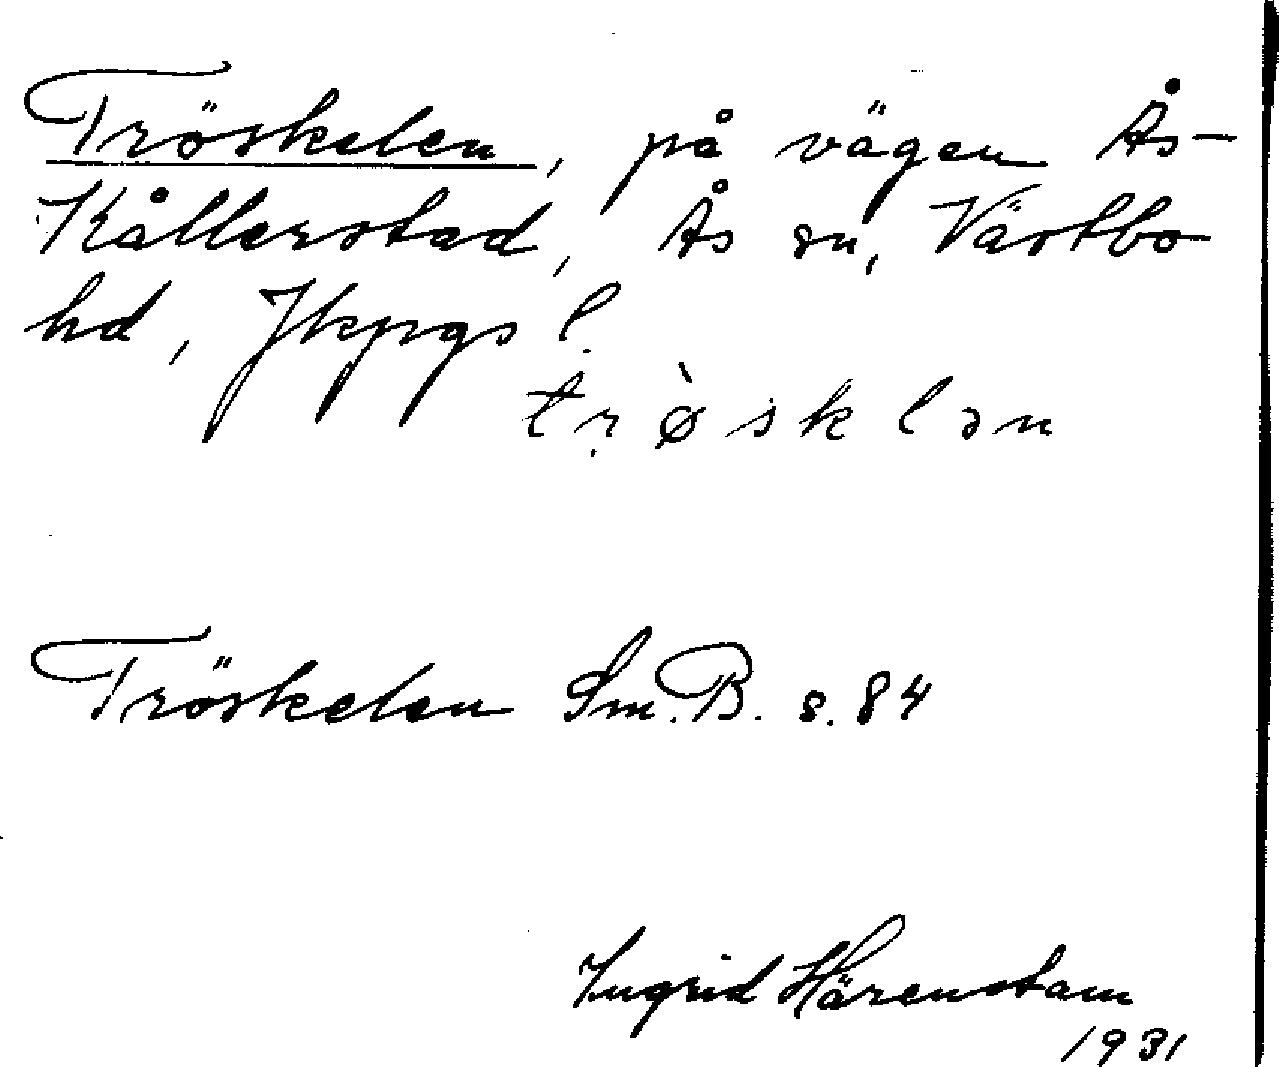 Tröskelen, på vägen Ås-
Kållerstad, Ås sn, Västbo
hd, Jkpgs l.
trø̀sklən
Tröskelen Sm. B. s. 84
Ingrid Härenstam
1931